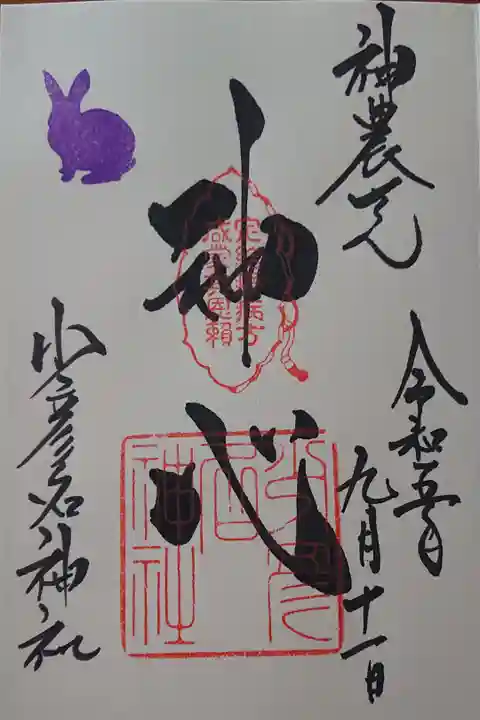 神農さん
令和五年
九月十一日
神心
少彦名神社
少彦名
神社